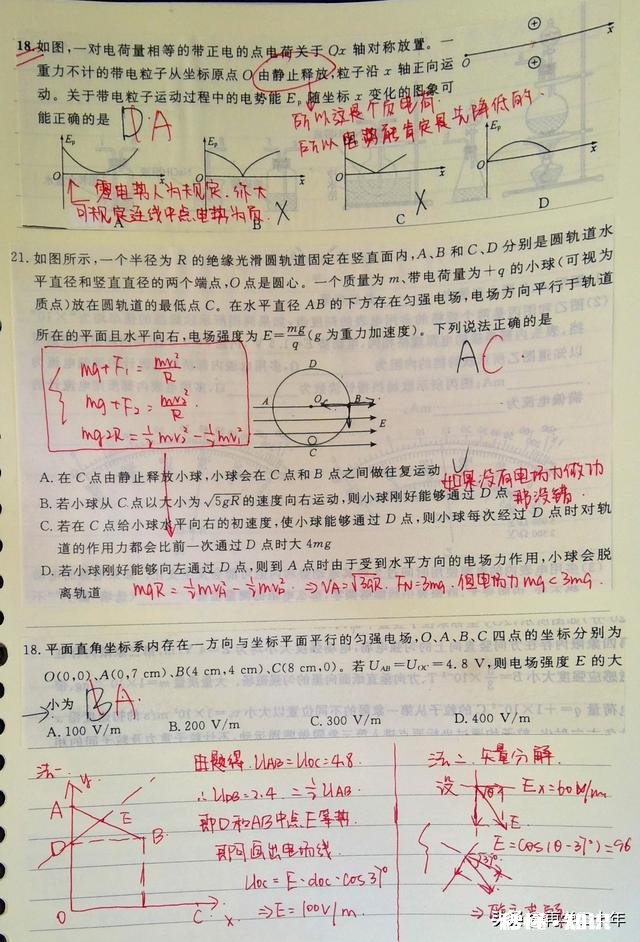 18. 如图,一对电荷量相等的带正电的点电荷关于 Ox 轴对称放置。一
重力不计的带电粒子从坐标原点 O 由静止释放,粒子沿 x 轴正向运
动。关于带电粒子运动过程中的电势能 Ep 随坐标 x 变化的图象可
能正确的是
D A
所以这是个负电荷.
所以电势能肯定是先降低的.
O x
Ep O x
Ep O x
Ep O x
Ep O x
零电势人为规定.亦大
可规定连线中点电势为零.
A B X C X D
21. 如图所示,一个半径为 R 的绝缘光滑圆轨道固定在竖直面内,A、B 和 C、D 分别是圆轨道水
平直径和竖直直径的两个端点,O 点是圆心。一个质量为 m、带电荷量为+q 的小球(可视为
质点)放在圆轨道的最低点 C。在水平直径 AB 的下方存在匀强电场,电场方向平行于轨道
所在的平面且水平向右,电场强度为 E=mg/q(g 为重力加速度)。下列说法正确的是
AC.
mg+F₁=mv₁²/R
mg+F₂=mv₂²/R.
mg2R=½mv₂²-½mv₁²
D
A O B
E
C
A. 在 C 点由静止释放小球,小球会在 C 点和 B 点之间做往复运动 √
如果没有电场力做功
B. 若小球从 C 点以大小为√5gR的速度向右运动,则小球刚好能够通过 D 点
那没错.
C. 若在 C 点给小球水平向右的初速度,使小球能够通过 D 点,则小球每次经过 D 点时对轨
道的作用力都会比前一次通过 D 点时大 4mg
D. 若小球刚好能够向左通过 D 点,则到 A 点时由于受到水平方向的电场力作用,小球会脱
离轨道
mgR=½mvA²-½mvD² ⇒VA=√3gR. FN=3mg. 但电场力mg<3mg.
18. 平面直角坐标系内存在一方向与坐标平面平行的匀强电场,O、A、B、C 四点的坐标分别为
O(0,0)、A(0,7 cm)、B(4 cm,4 cm)、C(8 cm,0)。若 UAB=UOC=4.8 V,则电场强度 E 的大
小为
B A.
A. 100 V/m B. 200 V/m C. 300 V/m D. 400 V/m
法一.
y
A E
D B
O C x
由题得. UAB=UOC=4.8
∴UDB=2.4 =½UAB
即D和AB中点E等势.
即可画出电场线.
UOC=E·dOC·cos37°
⇒E=100V/m.
法二.矢量分解.
设 θ Ex=60V/m.
E
E=cos(θ-37°)=96
37°